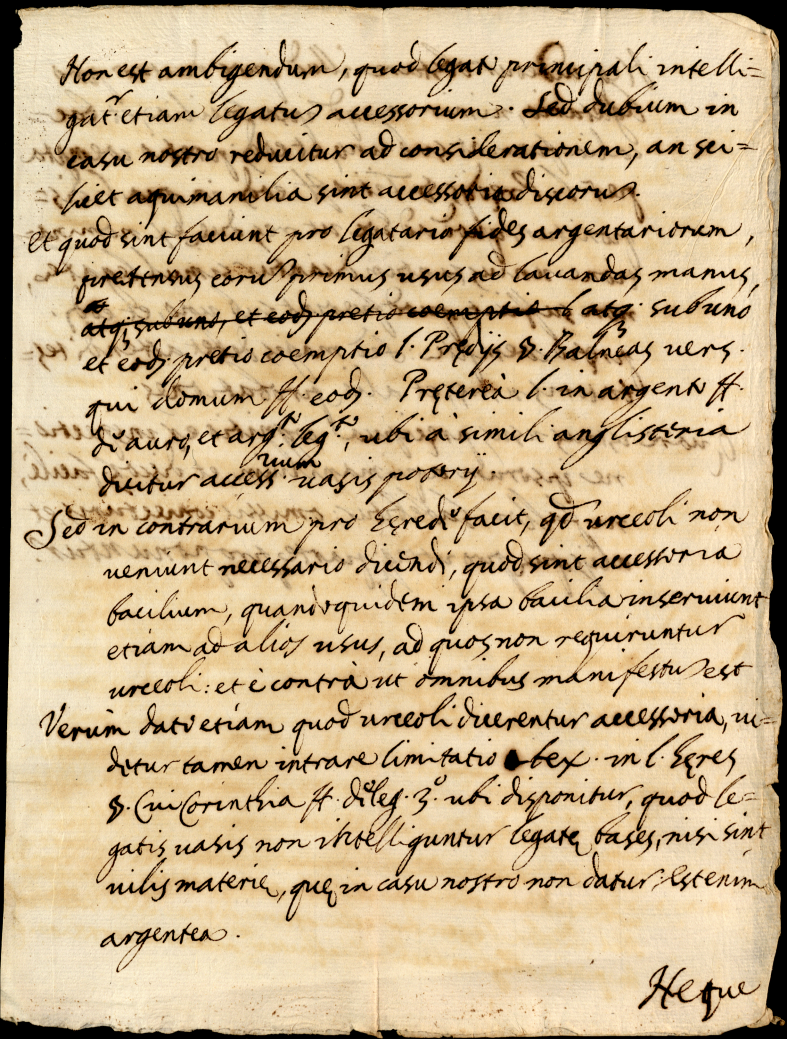 Non est ambigendum, quod legato principali intelli=
gat.r etiam legatus accessorium. Sed dubium in
casu nostro reducitur ad considerationem, an sci=
licet aquimanilia sint accessoria discorum.
Et quod sint faciunt pro legatario fides argentariorum,
pretensus eorum primus usus ad lavandas manus,
atq; sub uno, et eod; pretio coemptio l. atq; sub uno
et eod; pretio coemptio l. Prędijs §. Balneas vers.
qui domum ff. eod. Pręterea l. in argento ff.
de auro, et arg.to leg.to, ubi à simili anglisteria
dicitur access.rium vasis poterij
Sed in contrarium pro hęrede facit, qđ urceoli non
veniunt necessario dicendi, quod sint accessoria
bacilium, quandoquidem ipsa bacilia inserviunt
etiam ad alios usus, ad quos non requiruntur
urceoli: et è contrà ut omnibus manifestum est
Verùm dato etiam quod urceoli dicerentur accessoria, vi=
detur tamen intrare limitatio tex. in l. hęres
§. Cui Corinthia ff. de leg. 3.o ubi disponitur, quod le=
gatis vasis non intelliguntur legatę bases, nisi sint
vilis materię, quę in casu nostro non datur: est enim
argentea.
Neque